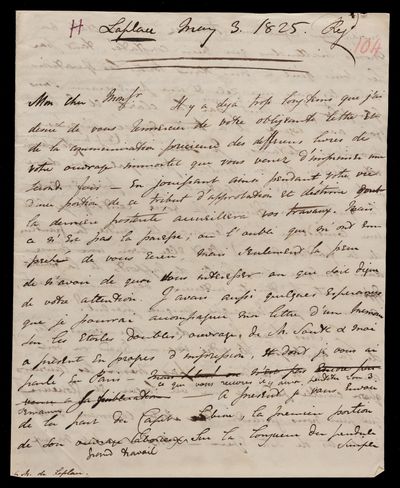 H Laplace May 3. 1825. Rey
104
Mon cher Monsr Il y a déjà trop longtems que j'ai
desiré de vous remercier de votre obligeante lettre et
de la communication précieuse des differens livres de
votre ouvrage immortel que vous venez d'imprimer une
seconde fois — En jouissant ainsi pendant votre vie
d'une portion de ce tribut d'approbation et d'estime dont
la derniere posterité accueillera vos travaux. Mais
ce n'est pas la paresse, ou l'oubli qui m'ont em
peché de vous ecrire mais seulement la peur
de n'avoir de quoi vous interesser ou qui soit digne
de votre attention J'avais aussi quelques esperances
que je pourrai accompagner ma lettre d'un
sur les Etoiles doubles, ouvrage de Mr South & moi
a présent en progres d'impression, et dont je vous ai
parlé en Paris
ce que vous recevrez, il y aura
la publication — A present je vous envoie
de la part du Capitn Sabine, la premiere portion
de son ouvrage laborieux sur la longueur du pendule
grand travail simple
à M. de Laplace.